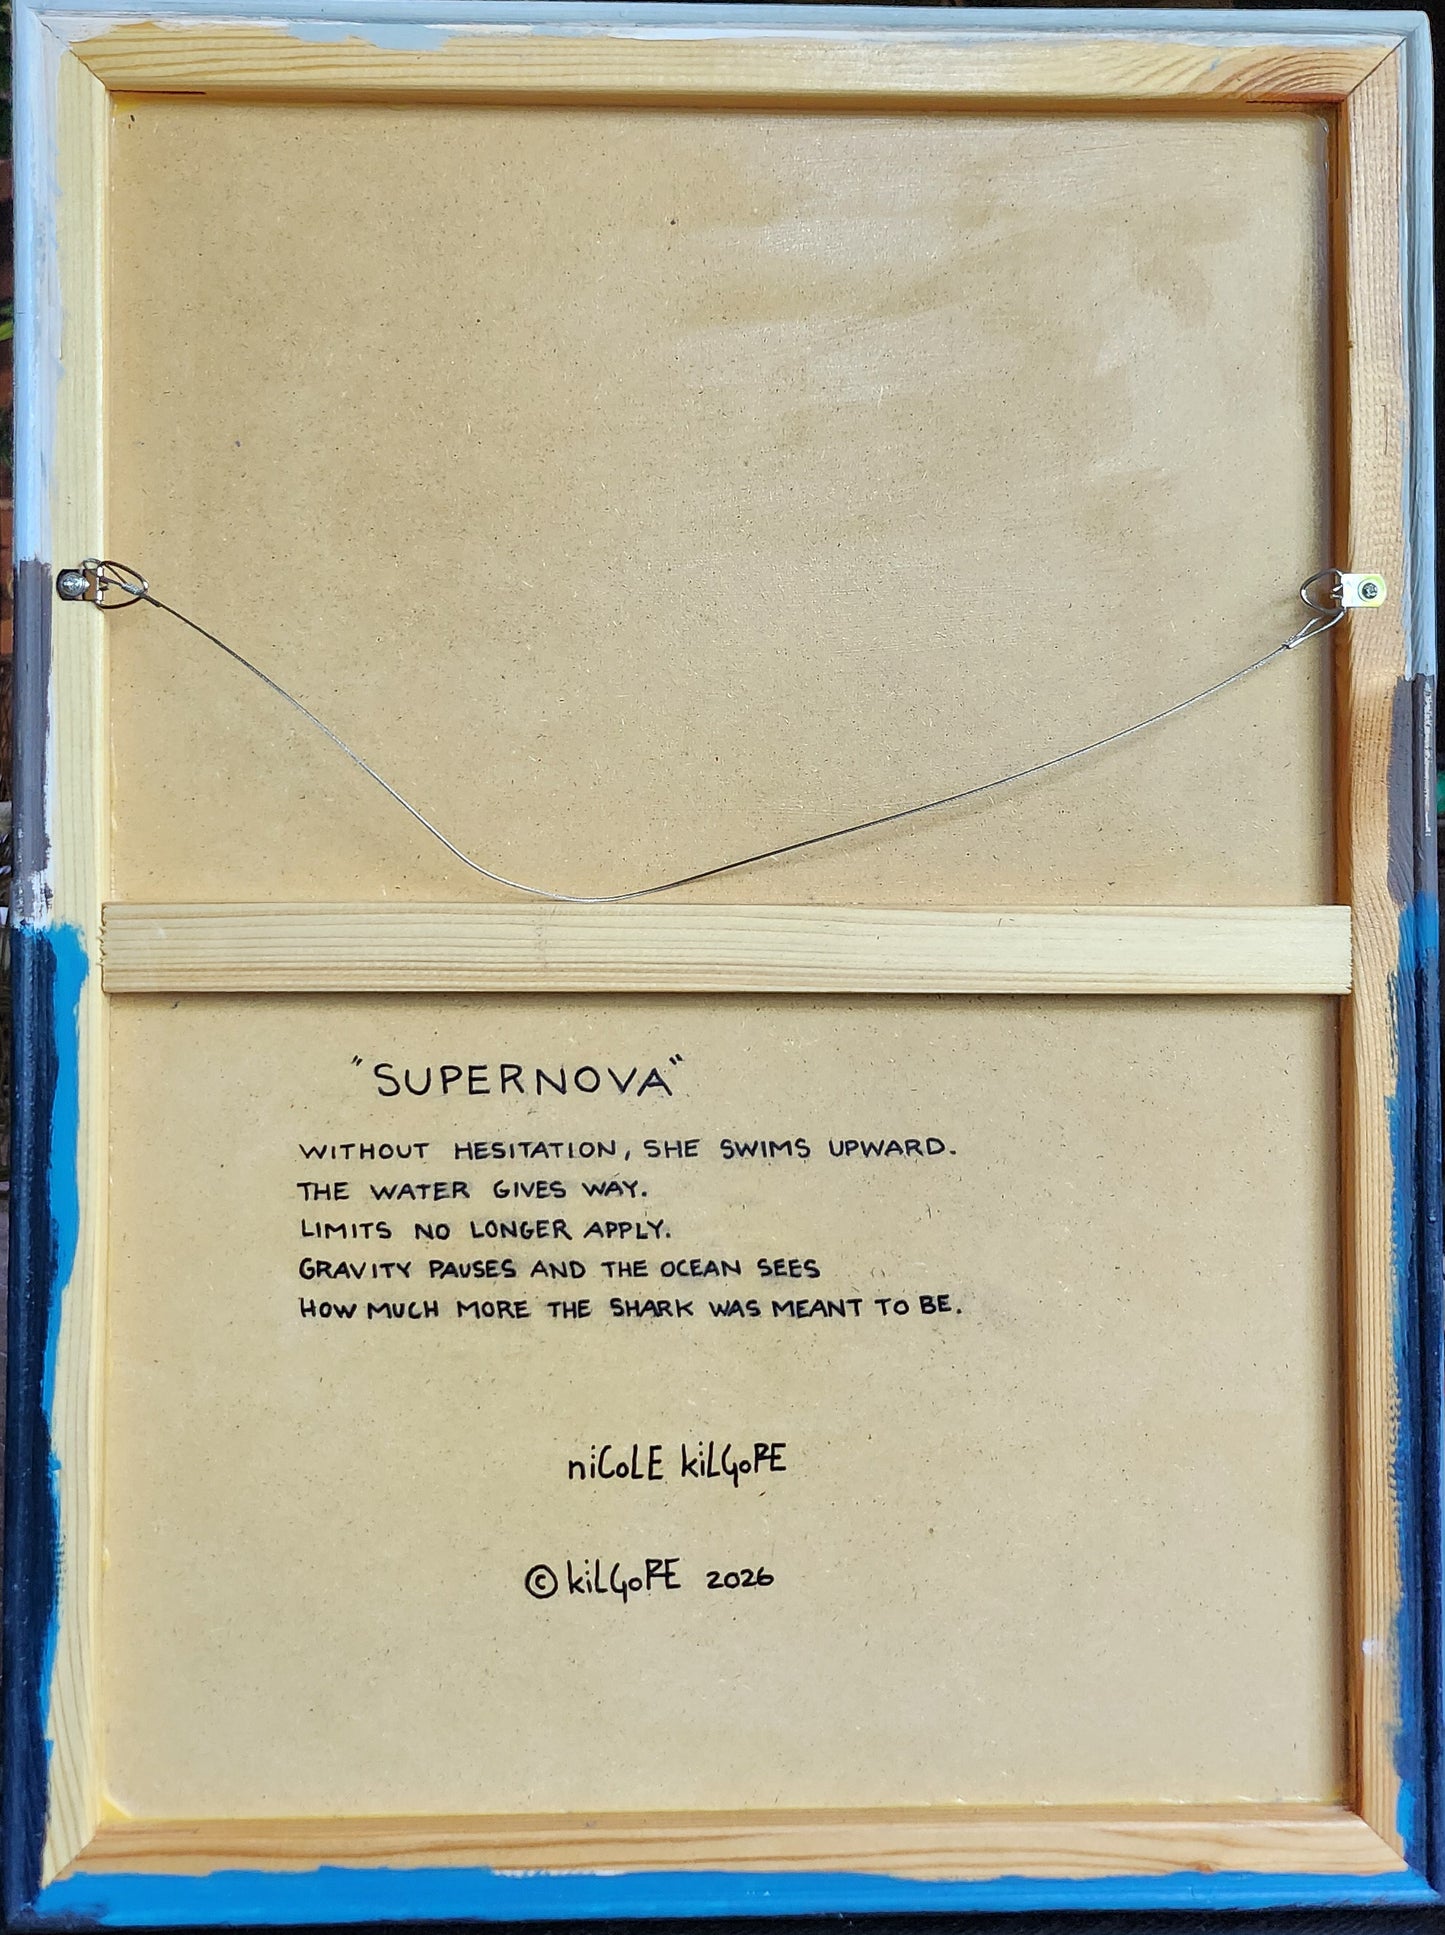 "SUPERNOVA"
WITHOUT HESITATION, SHE SWIMS UPWARD.
THE WATER GIVES WAY.
LIMITS NO LONGER APPLY.
GRAVITY PAUSES AND THE OCEAN SEES
HOW MUCH MORE THE SHARK WAS MEANT TO BE.
niCoLE kiLGoRE
© kiLGoRE 2026